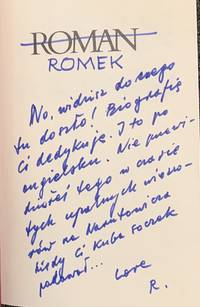 ROMAN
ROMEK
No, widzisz do czego
tu doszło! Biografię
Ci dedykuję. I to po
angielsku. Nie przewi-
działeś tego w czasie
tych upalnych wieczo-
rów na Narutowicza
kiedy Ci Kuba
podawał...
Love
R.